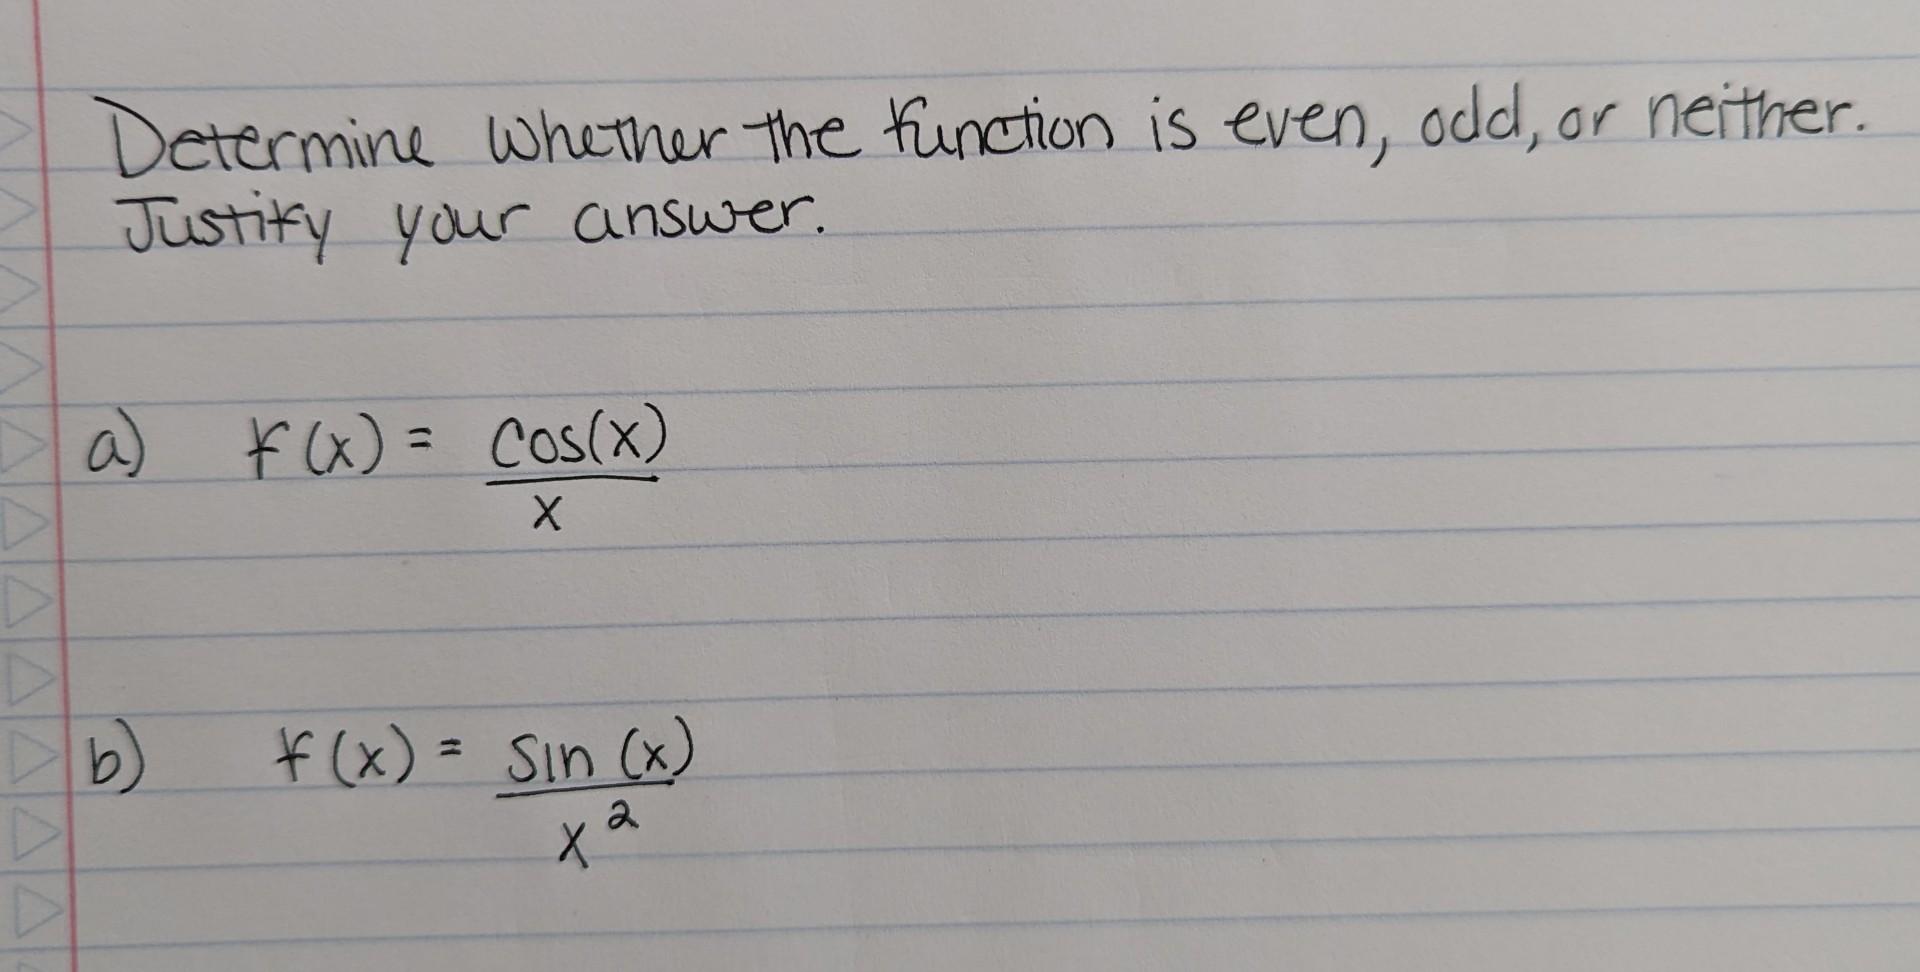 Determine whether the function is even, odd, or neither.
Justify your answer.
a) f(x) = cos(x)
x
b) f(x) = sin (x)
x²